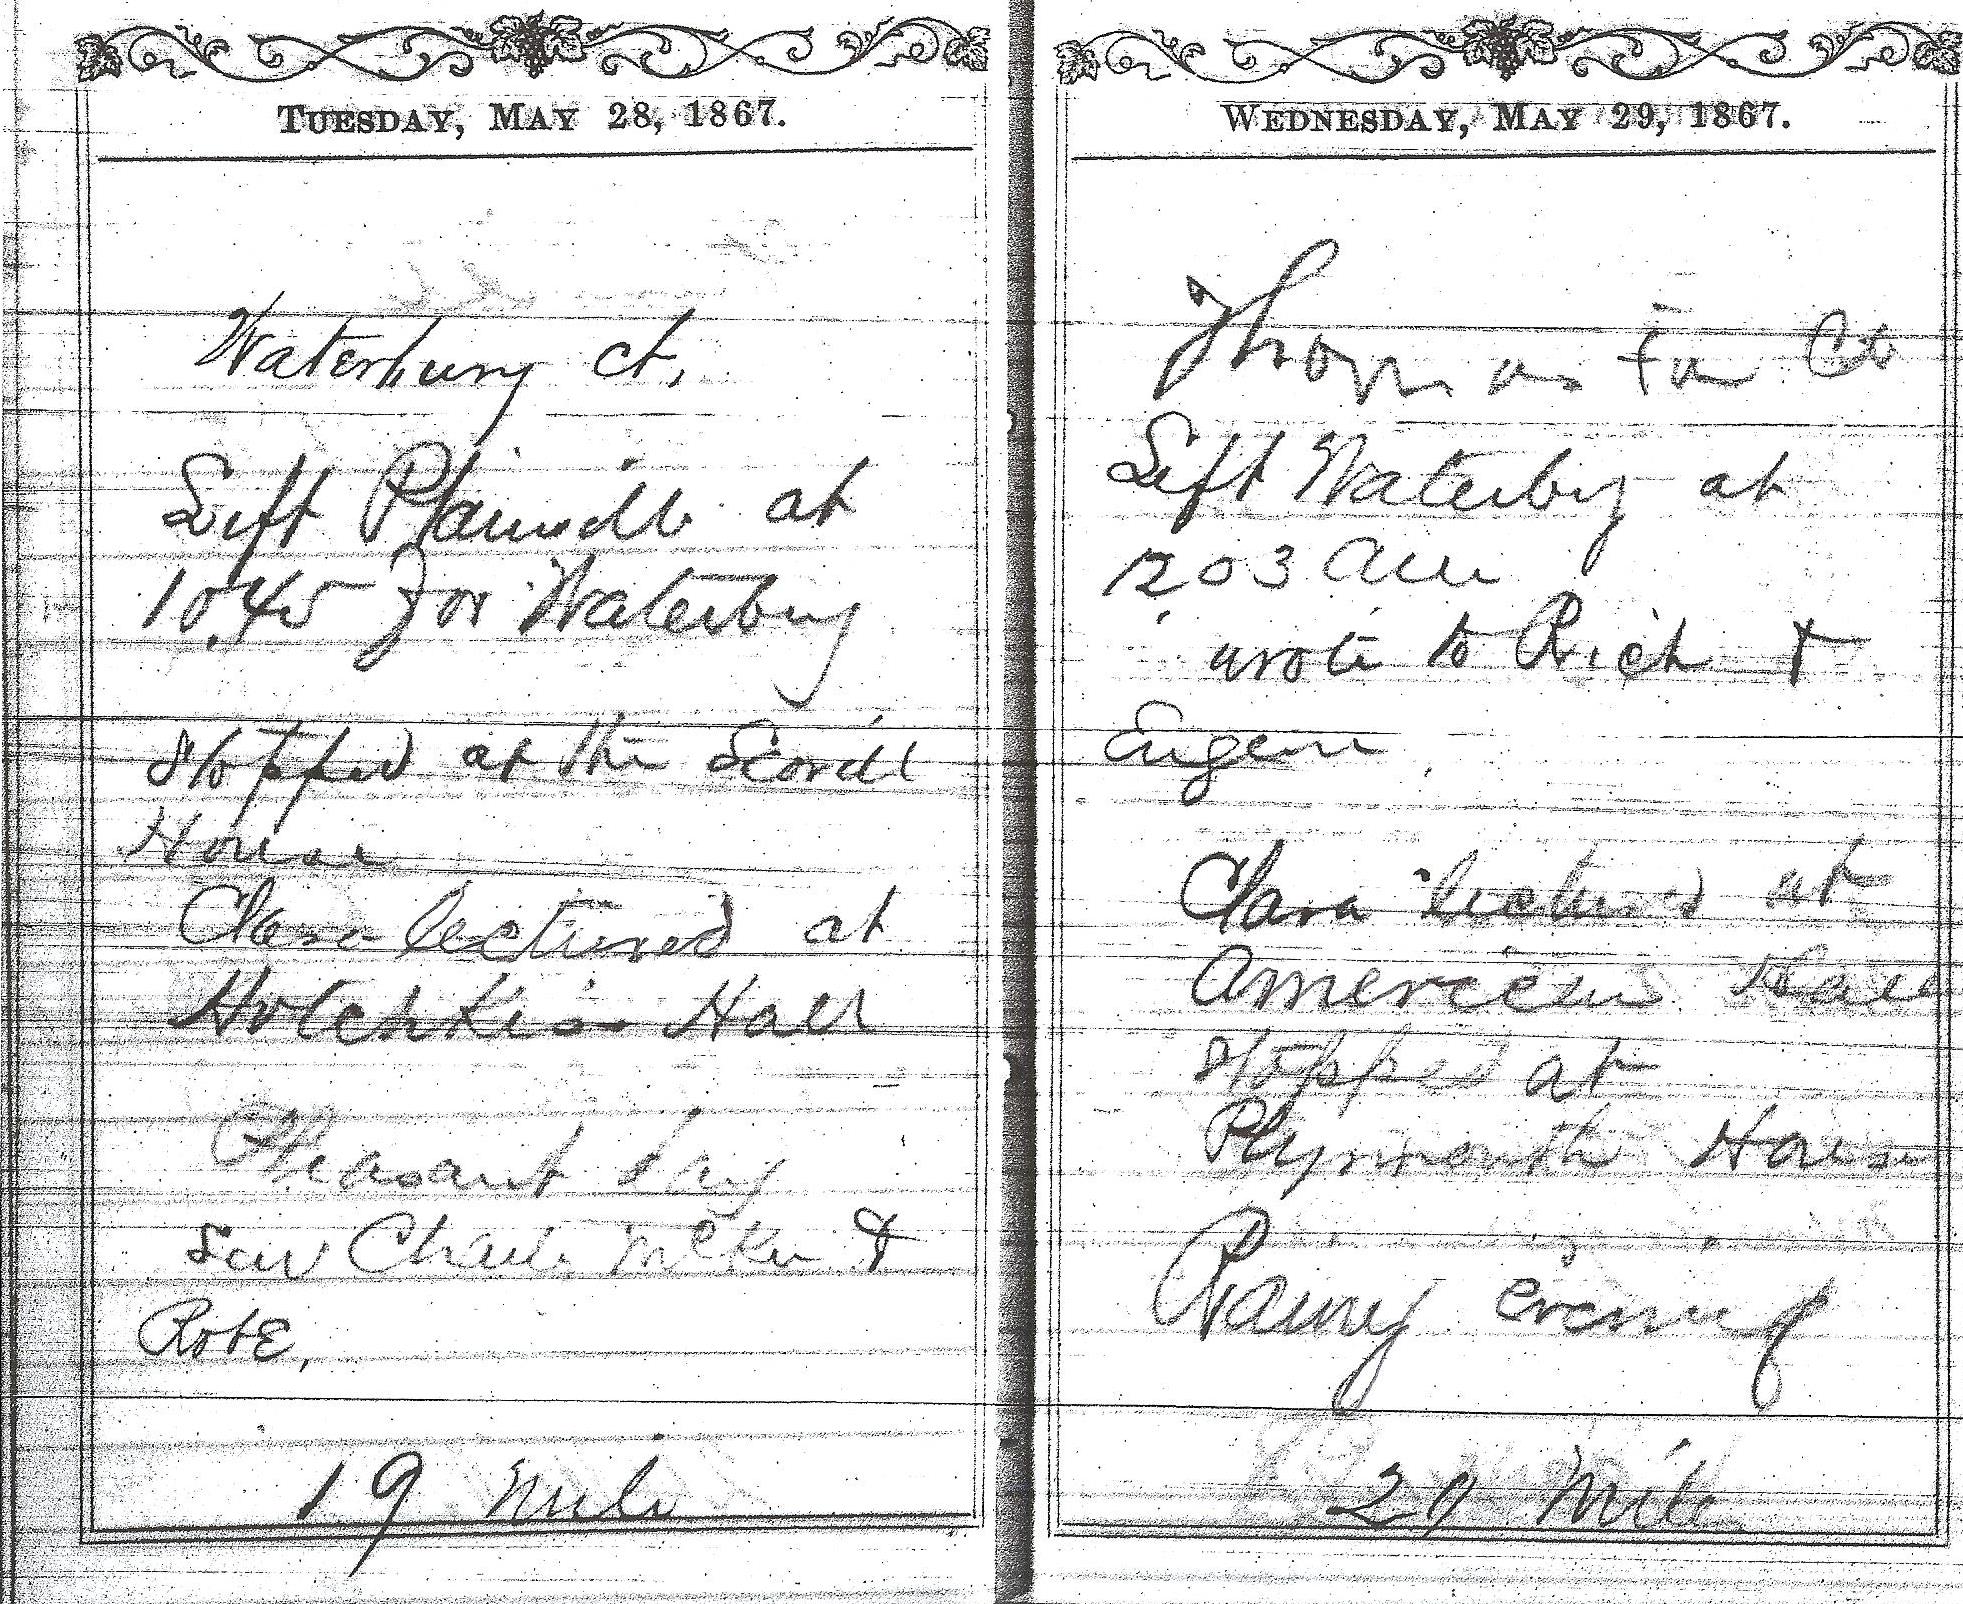 TUESDAY, MAY 28, 1867.
Waterbury ct,
Left Plainville at
10.45 for Waterbury
Stopped at the Scovill
House
Clara lectured at
Hotchkiss Hall
Pleasant day
Saw Charle &
Robt,
19 Mile
WEDNESDAY, MAY 29, 1867.
Thomaston Ct
Left Waterbury at
1203 am
wrote to Rich &
Eugene
Clara lectured at
American Hall
Stopped at
Plymouth House
Rainy evening
20 Mile